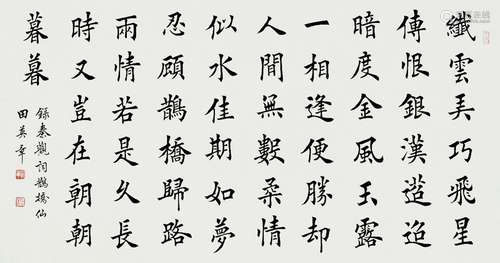 纖雲弄巧飛星
傳恨銀漢迢迢
暗度金風玉露
一相逢便勝却
人間無數柔情
似水佳期如夢
忍顧鵲橋歸路
兩情若是久長
時又豈在朝朝
暮暮
錄秦觀詞鵲橋仙
田英章